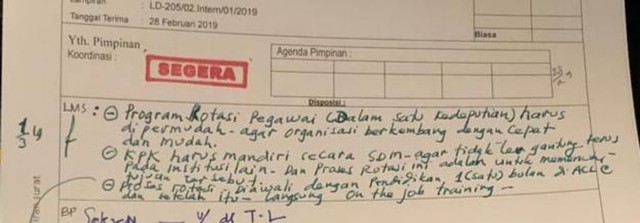 Lampiran : LD-205/02.Intern/01/2019
Tanggal Terima : 28 Februari 2019
Biasa
Yth. Pimpinan
Koordinasi :
SEGERA
Agenda Pimpinan :
Disposisi :
LMS : ⊖ Program Rotasi Pegawai (Dalam satu kedeputian) harus
di permudah - agar organisasi berkembang dengan cepat
dan mudah.
⊖ KPK harus mandiri secara SDM - agar tidak ter gantung terus
pada institusi lain. Dan Proses Rotasi ini adalah untuk
tujuan tersebut.
⊖ Proses rotasi - dikawali dengan Pendidikan, 1 (satu) bulan di ACLC
dan setelah itu - langsung On the job training -
1/3 19
BP